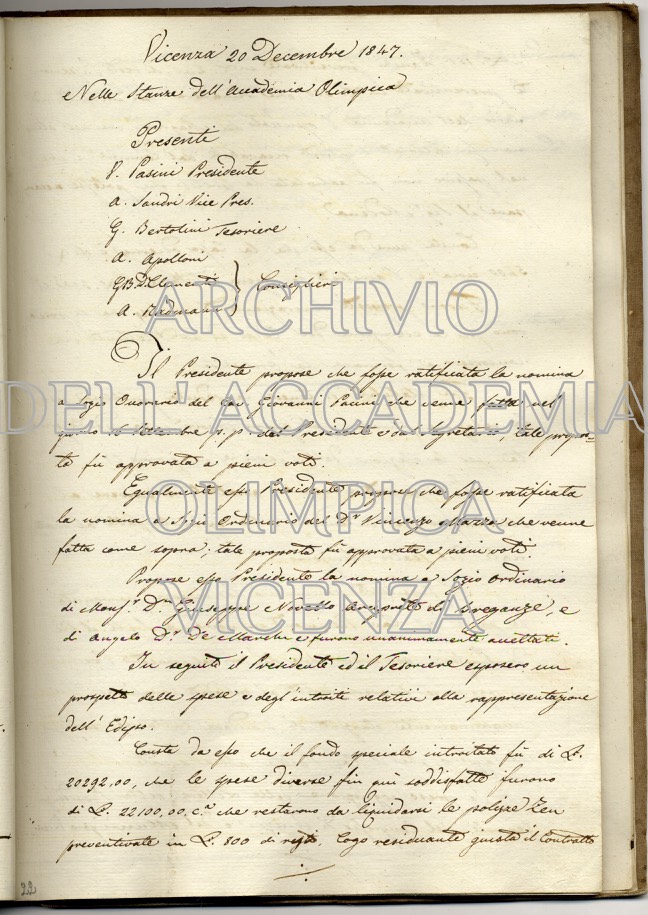 Vicenza 20 Decembre 1847.
Nelle Stanze dell'Accademia Olimpica
Presenti
V. Pasini Presidente
A. Sandri Vice Pres.
G. Bertolini Tesoriere
A. Apolloni
G.B. D. Clementi
Consiglieri
A.
ARCHIVIO
Il Presidente propose che fosse ratificata la nomina
a Sozio Onorario del Cav. Giovanni Pacini che venne fatta nel
DELL'ACCADEMIA
giorno 16 Settembre p. p. dal Presidente e dal Segretario, tale propos-
ta fù approvata a pieni voti.
Egualmente esso Presidente propose che fosse ratificata
OLIMPICA
la nomina a Sozio Ordinario del Dr. Vincenzo Mazza che venne
fatta come sopra; tale proposta fù approvata a pieni voti.
Propose esso Presidente la nomina a Sozio Ordinario
di Monsr. Dn. Giuseppe Novello Arciprete di Breganze, e
VICENZA
di Angelo Dr. De Marchi e furono unanimamente accettati.
In seguito il Presidente ed il Tesoriere esposero un
prospetto delle spese e degl'introiti relativi alla rappresentazione
dell'Edipo.
Consta da esso che il fondo speciale introitato fù di L.
20292,00, che le spese diverse fin quì soddisfatte furono
di L. 22100,00, c.a che restarono da liquidarsi le polizze Zen
preventivate in L. 800 di resto. Cogo residuante giusta il Contratto
22